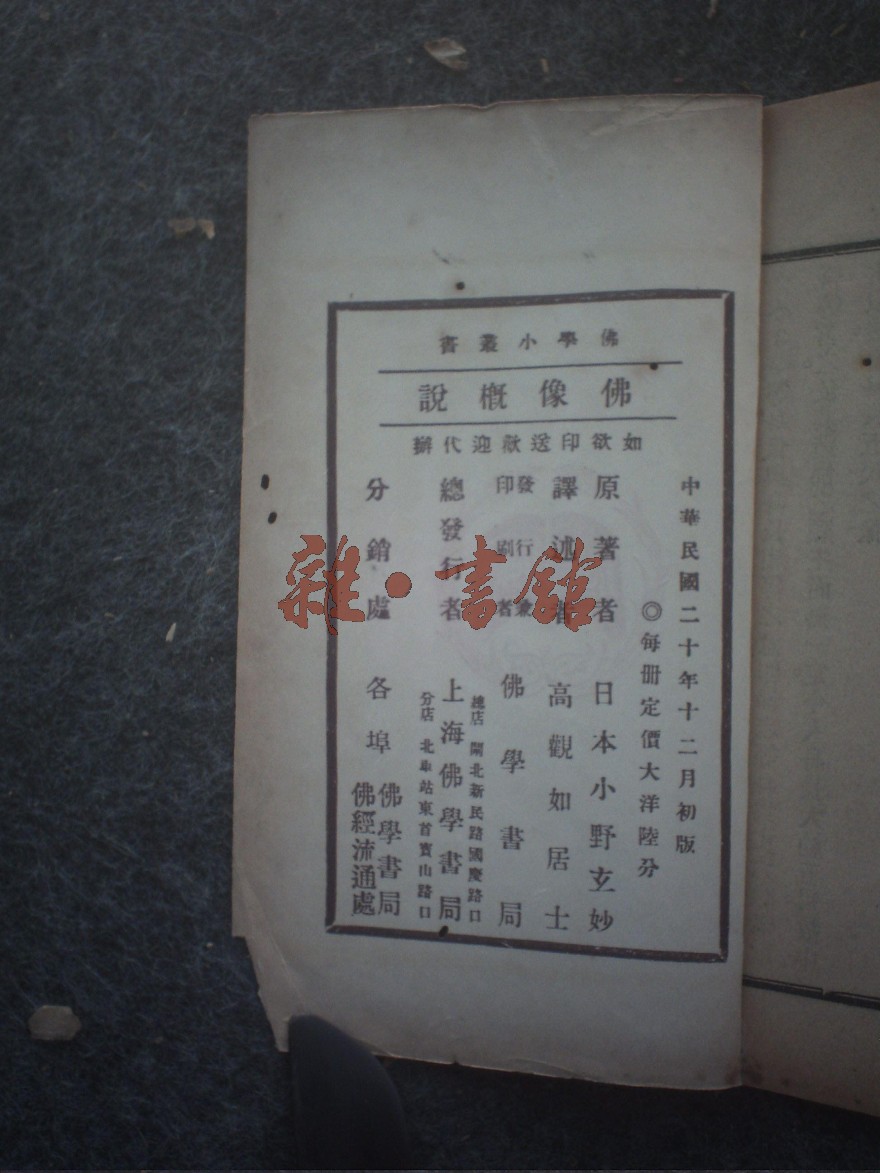 佛學小叢書
佛像概說
如欲印送歡迎代辦
中華民國二十年十二月初版
◎每册定價大洋陸分
原著者 日本小野玄妙
譯述者 高觀如居士
發行兼印刷者 佛學書局
總店 閘北新民路國慶路口
總發行者 上海佛學書局
分店 北車站東首寶山路口
分銷處 各埠 佛學書局 佛經流通處
雜·書館